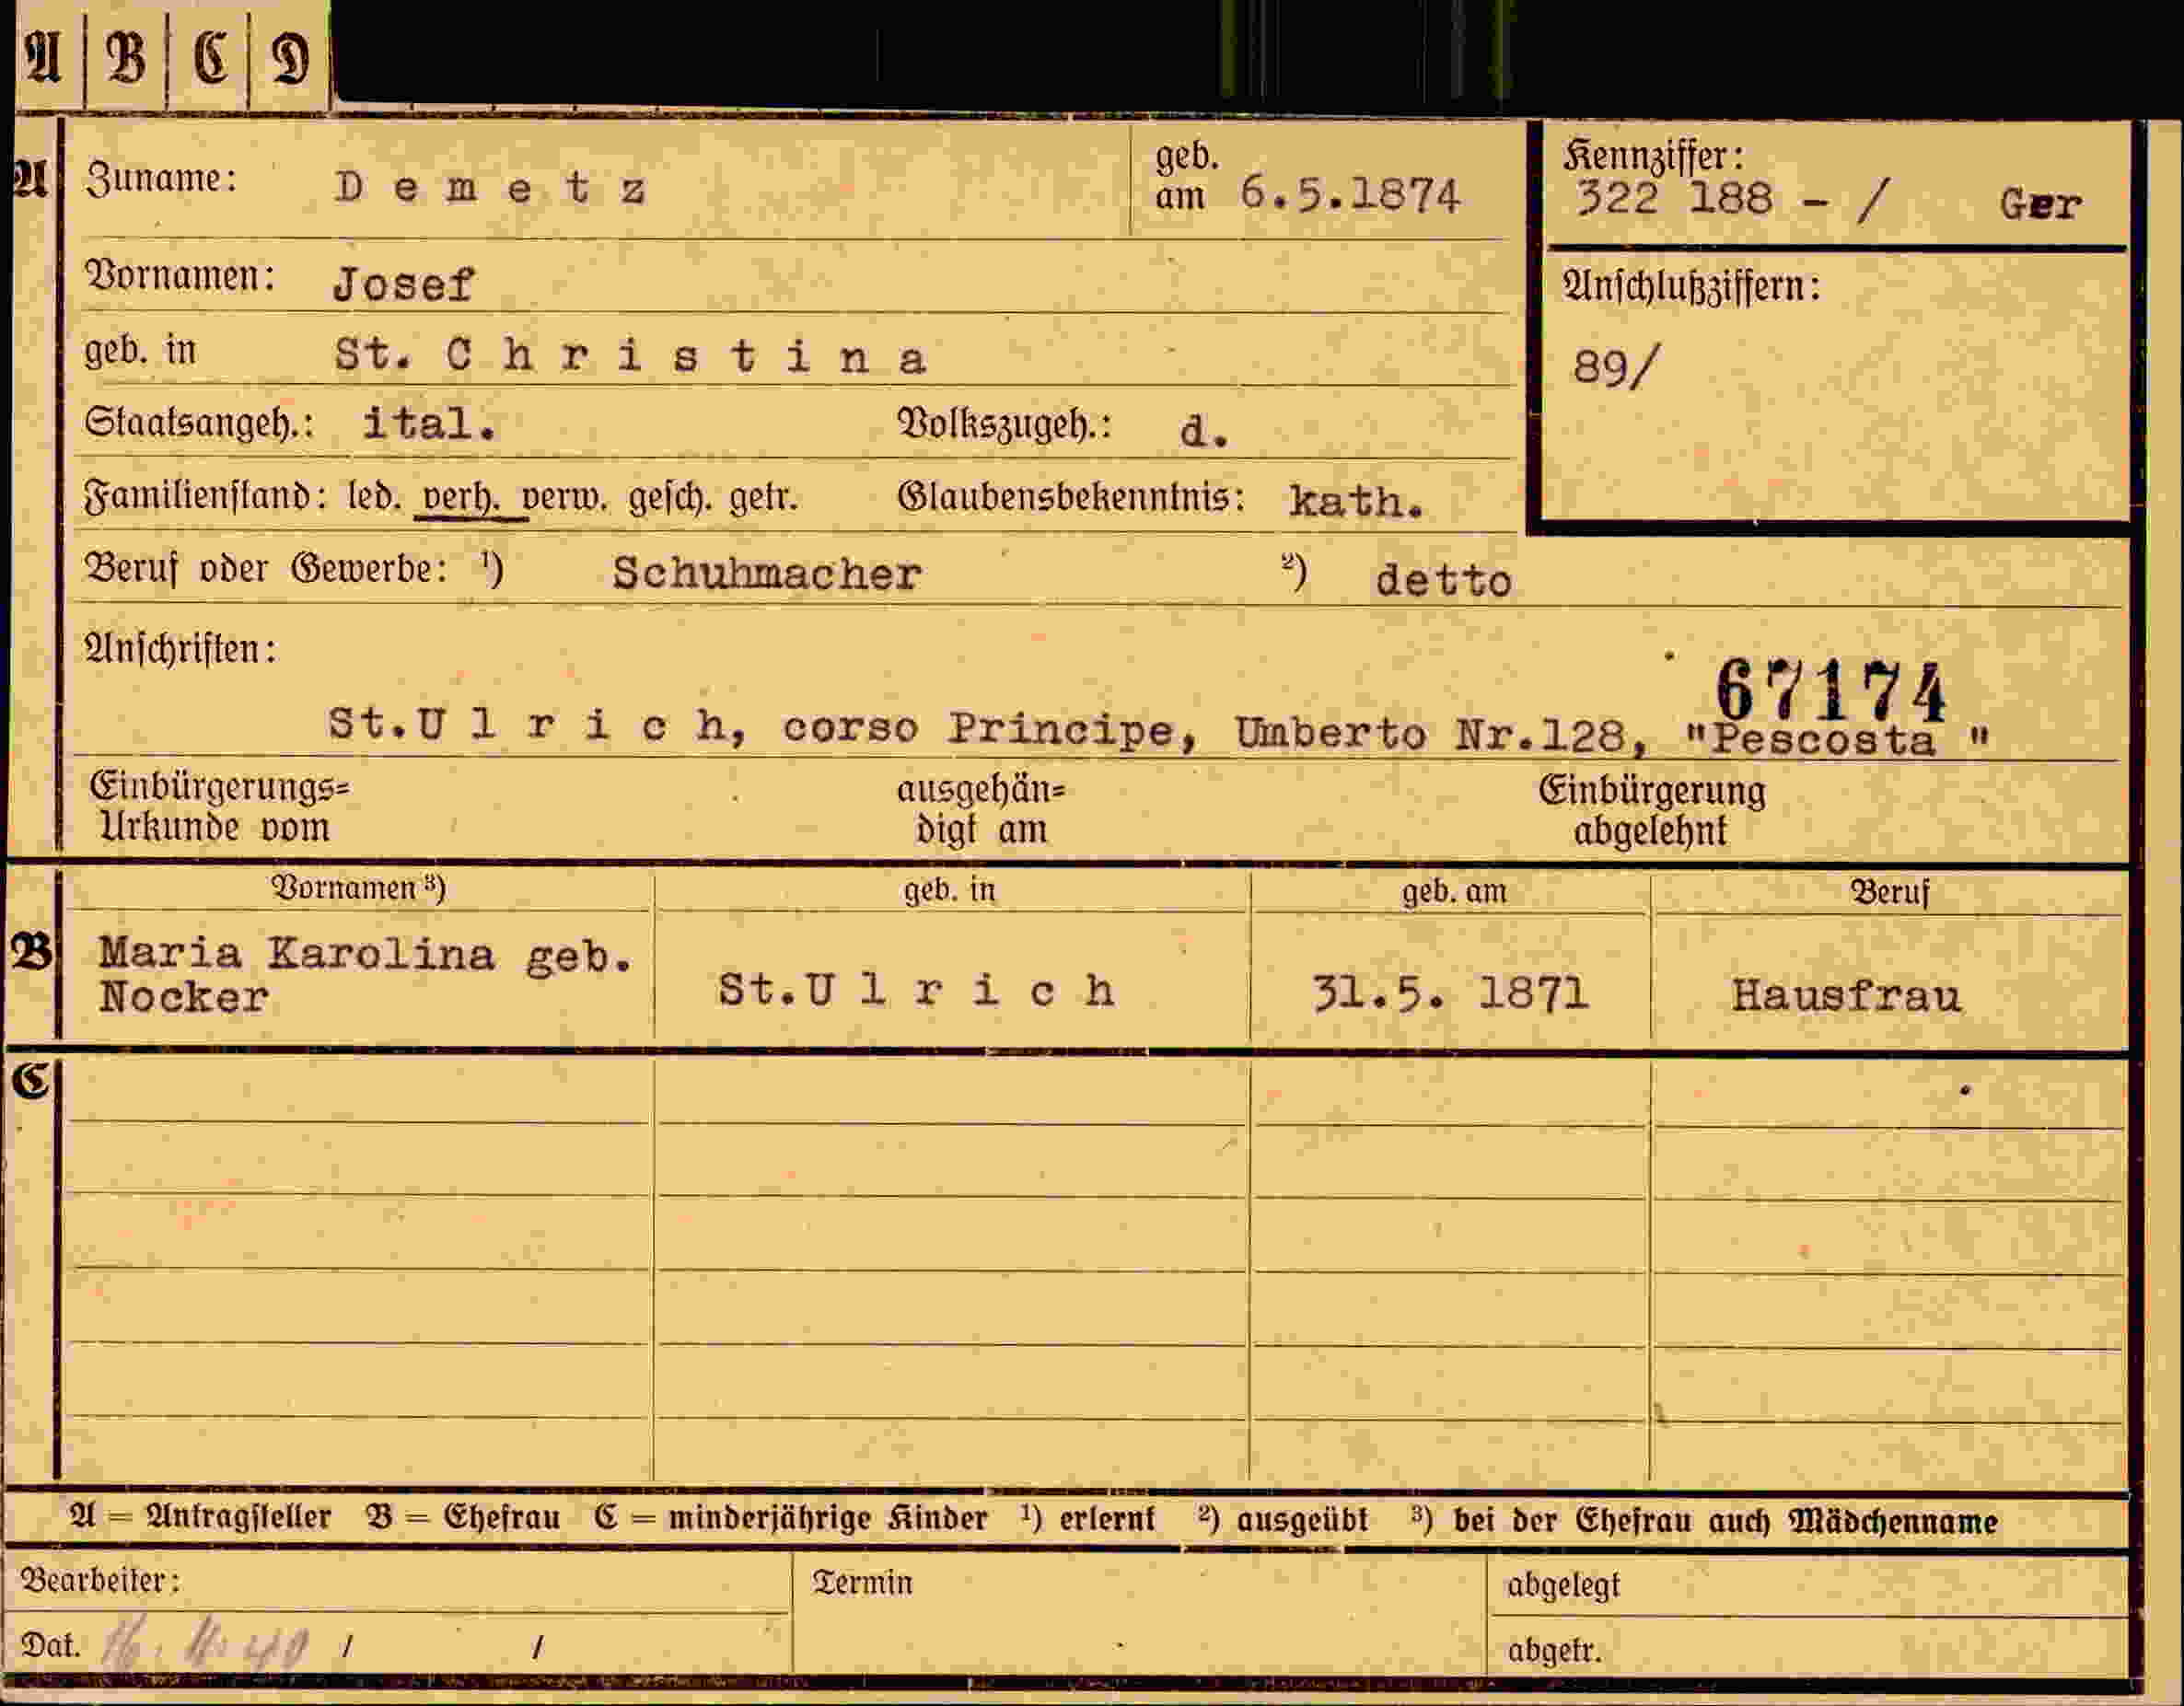 A B C D
A Zuname: Demetz geb. am 6.5.1874 Kennziffer: 322 188 - / Ger
Vornamen: Josef Anschlußziffern:
geb. in St. Christina 89/
Staatsangeh.: ital. Volkszugeh.: d.
Familienstand: led. verh. verw. gesch. getr. Glaubensbekenntnis: kath.
Beruf oder Gewerbe: ¹) Schuhmacher ²) detto
Anschriften:
67174
St.Ulrich, corso Principe, Umberto Nr.128, "Pescosta "
Einbürgerungs= ausgehän= Einbürgerung
Urkunde vom digt am abgelehnt
Vornamen ³) geb. in geb. am Beruf
B Maria Karolina geb.
Nocker St.Ulrich 31.5. 1871 Hausfrau
C
A = Antragsteller B = Ehefrau C = minderjährige Kinder ¹) erlernt ²) ausgeübt ³) bei der Ehefrau auch Mädchenname
Bearbeiter: Termin abgelegt
Dat. / / abgetr.